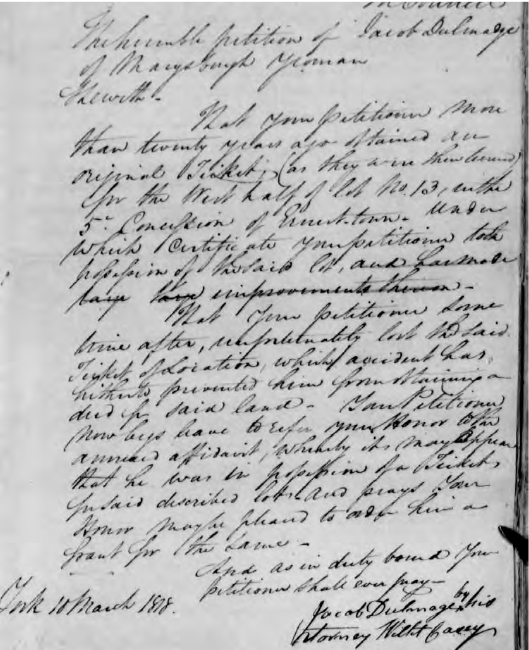 in Council
The humble petition of Jacob Dulmadge
of Marysburgh Yeoman
Sheweth -
That your petitioner more
than twenty years ago obtained an
original Ticket, (as they were then termed)
for the West half of lot No. 13, in the
5th Concession of Ernest-town - Under
which Certificate your petitioner took
possession of the said lot, and has made
large improvements thereon -
That your petitioner some
time after, unfortunately lost the said
Ticket of Location, which accident has
hitherto prevented him from obtaining a
deed for said land - Your Petitioner
now begs leave to refer your Honor to the
annexed affidavit, whereby it may appear
that he was in possession of a Ticket
for said described lot and prays Your
Honor may be pleased to order him a
Grant for the same -
And as in duty bound Your
petitioner shall ever pray -
York 10 March 1818.
Jacob Dulmage by his
Attorney Willt Casey